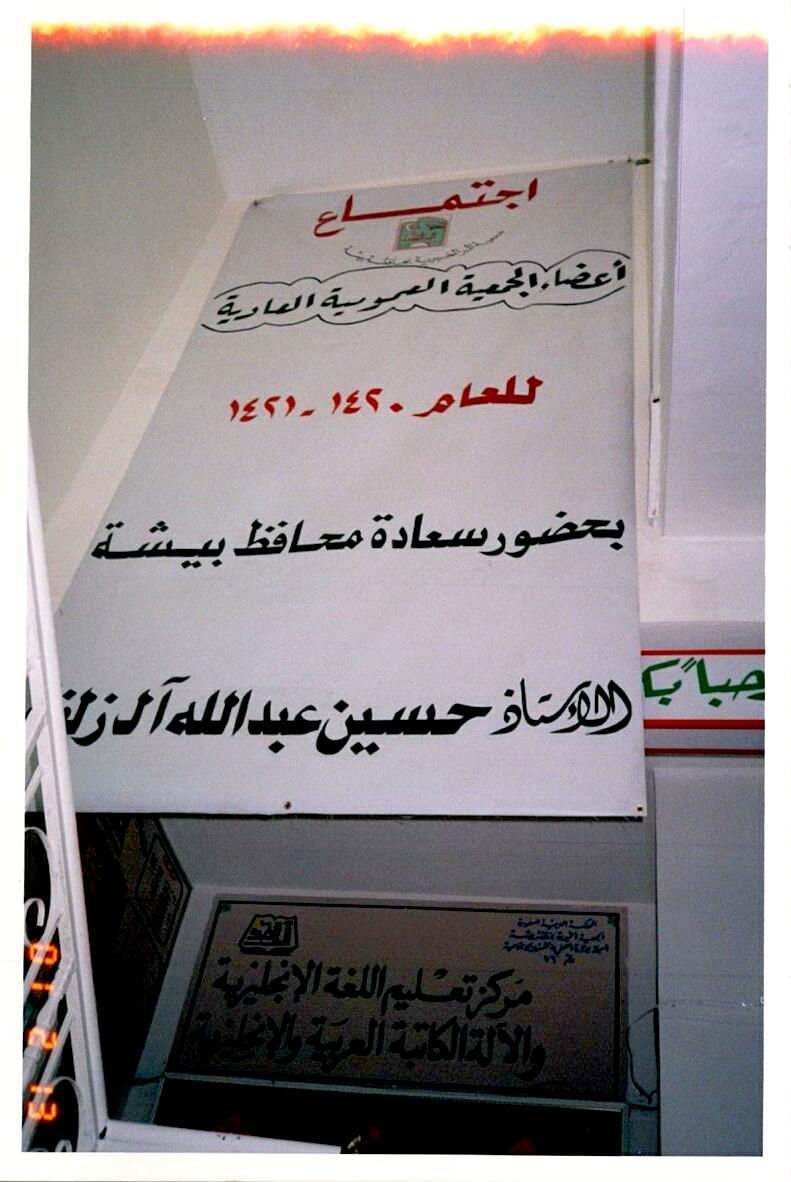 اجتمــاع
أعضاء الجمعية العمومية العادية
للعام ١٤٢٠ - ١٤٢١
بحضور سعادة محافظ بيشة
الأستاذ حسين عبدالله آل
مركز تعليم اللغة الإنجليزية
والآلة الكاتبة العربية والإنجليزية